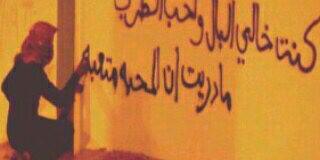 كنت خالي البال واحب الطرب
مادريت ان المحبه متعبه